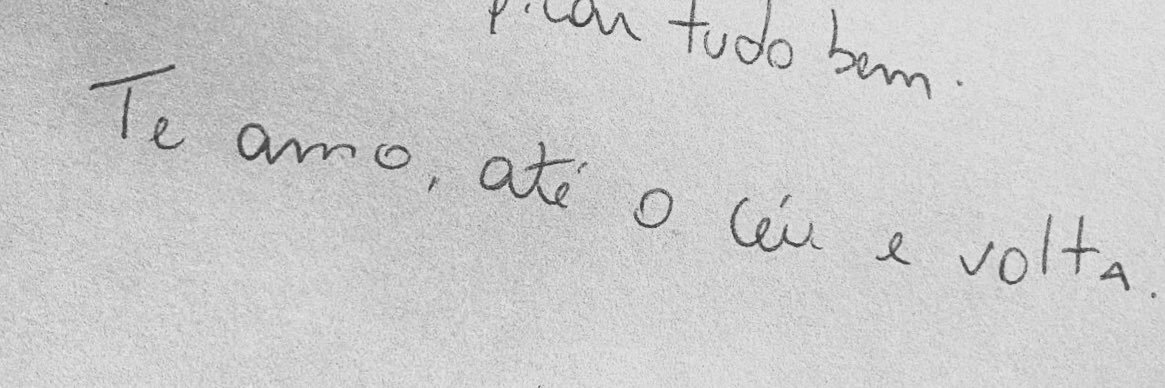 ficar tudo bem.
Te amo, até o céu e volta.